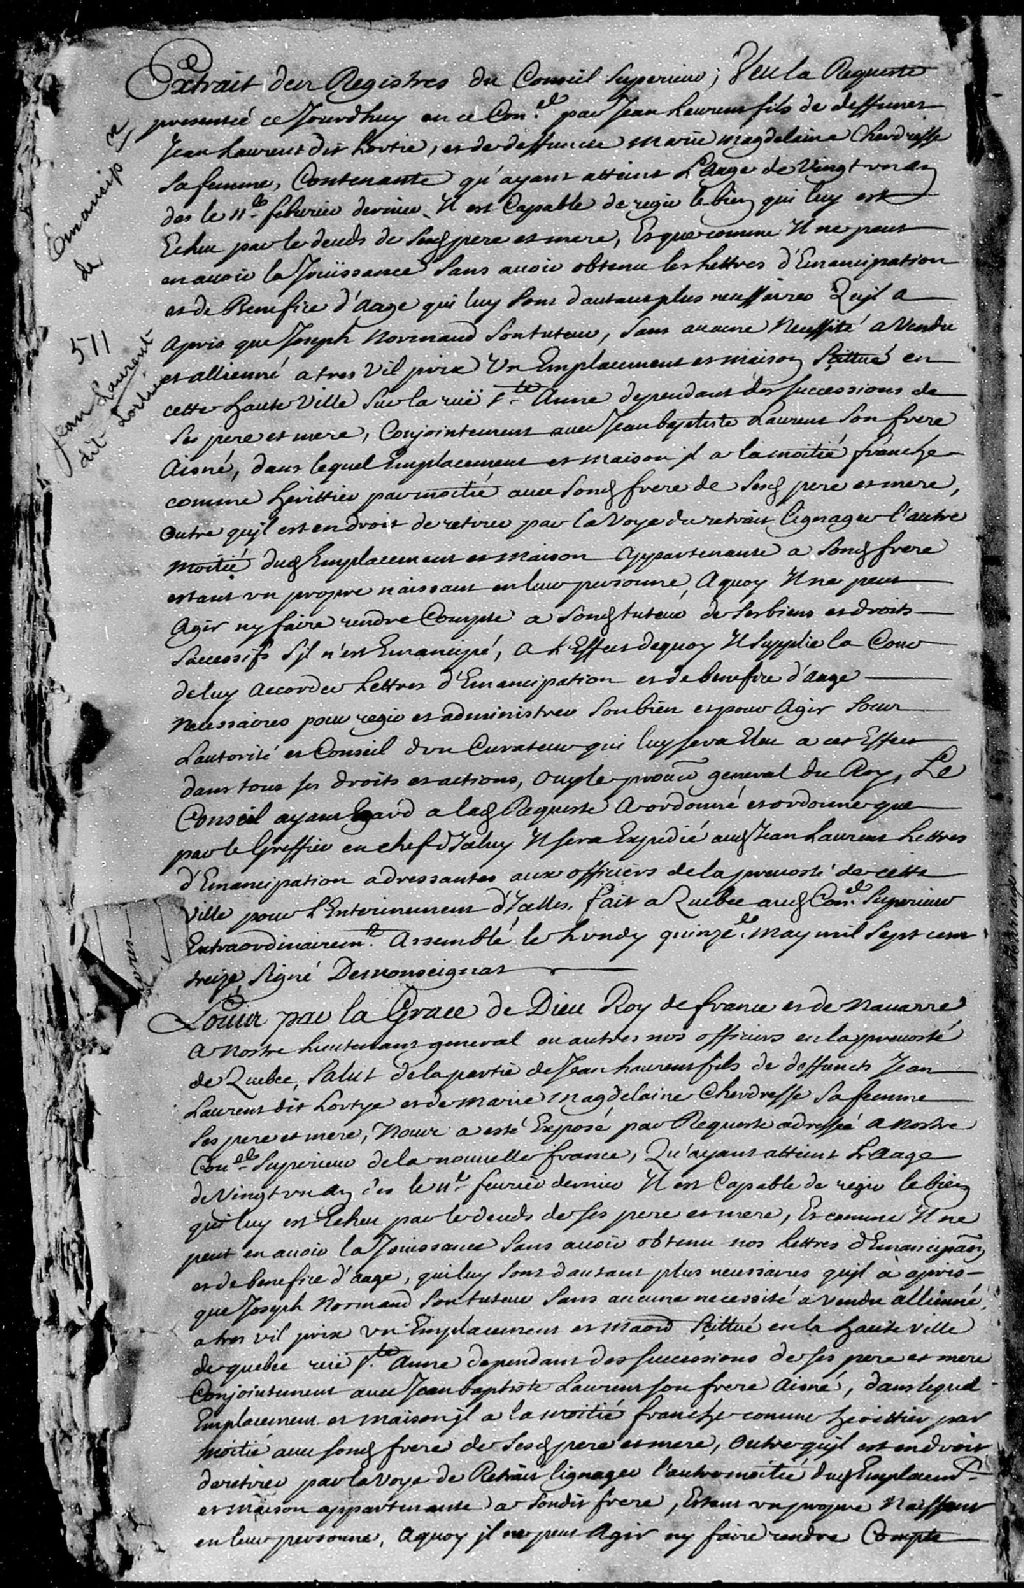 Extrait des Registres du Conseil Superieur; Veu la Requeste
presenté ce Jourdhuy en ce Con.el par Jean Laurent fils de deffunct
Jean Laurent dit Lortie, et de deffuncte Marie Magdelaine Cherdresse
sa femme, Contenante qu'ayant atteint L'aage de Vingt un an
des le 11.e febvrier dernier, Il est Capable de regir le bien qui luy est
Echeu par le deceds de Sesd pere et mere, Et que comme Il ne peut
en avoir la Joüissance Sans avoir obtenu les Lettres d'Emancipation
et de Benefice d'aage qui luy Sont dautant plus necessaires Quil a
apris que Joseph Normand Son tuteur, Sans aucune Necessité a Vendu
et allienné a tres vil prix Un Emplacement et maison Scittué en
cette Haute Ville Sur la ruë S.te Anne dependant des Successions de
Ses pere et mere, Conjointement avec Jean baptiste Laurent Son frere
Aisné, dans lequel Emplacement et maison Jl a la moitié franche
comme heritier par moitié avec Sond frere de Sesd pere et mere,
outre qu'jl est en droit de retirer par la Voye du retrait lignager l'autre
moitié dud Emplacement et maison Appartenante a Sond frere
estant un propre naissant en leur personne, A quoy Il ne peut
Agir ny faire rendre Compte a Sond tuteur de Ses biens et droits
Successifs S'jl n'est Emancipé, a L'Effect de quoy Il Supplie la Cour
de luy accorder Lettres d'Emancipation et de benefice d'aage
necessaires pour regir et administrer Son bien et pour Agir Sous
L'autorité et Conseil d'un Curateur qui luy Sera Eleu a cet Effect
dans tous ses droits et actions, ouy le procu.r general du Roy, Le
Conseil ayant Egard a lad Requeste A ordonné et ordonne que
par le Greffier en chef d'Jceluy Il Sera Expedié aud Jean Laurent Lettres
d'Emancipation adressantes aux officiers de la prevosté de cette
Ville pour L'Enterinement d'Jcelles. fait a Quebec aud Con.el Superieur
Extraordinairem.t Assemblé le Lundy quinze.e May mil Sept cent
treize, Signé Demonseignat
Louis par la Grace de Dieu Roy de france et de Navarre
A Nostre Lieutenant general ou autres nos officiers en la prevosté
de Quebec, Salut de la partie de Jean Laurent fils de deffuncts Jean
Laurent dit Lortye et de Marie Magdelaine Cherdresse Sa femme
Ses pere et mere, Nous a esté Exposé par Requeste adressée A Nostre
Con.el Superieur de la nouvelle france, Qu'ayant atteint L'aage
de Vingt un an des le 11.e fevrier dernier Il est Capable de regir le bien
qui luy est Echeu par le deceds de Ses pere et mere, Et comme Il ne
peut en avoir la Jouissance Sans avoir obtenu nos Lettres d'Emancipaõn
et de benefice d'aage, qui luy Sont d'autant plus necessaires qu'jl a apris
que Joseph Normand Son tuteur Sans aucune necessité a vendu allienné
a tres vil prix un Emplacement et maison Scittué en la Haute Ville
de quebec ruë S.te Anne dependant des Successions de Ses pere et mere
Conjointement avec Jean baptiste Laurent Son frere Aisné, dans lequel
Emplacement et maison jl a la moitié franche comme heritier par
moitié avec Sond frere de Sesd pere et mere, outre qu'jl est en droit
de retirer par la voye de Retrait lignager l'autre moitié dud Emplacem.t
et maison appartenante a Sondit frere, Estant un propre Naissant
en leur personne, A quoy jl ne peut Agir ny faire rendre Compte
Emancip.n
de
511
Jean Laurent
dit Lortie